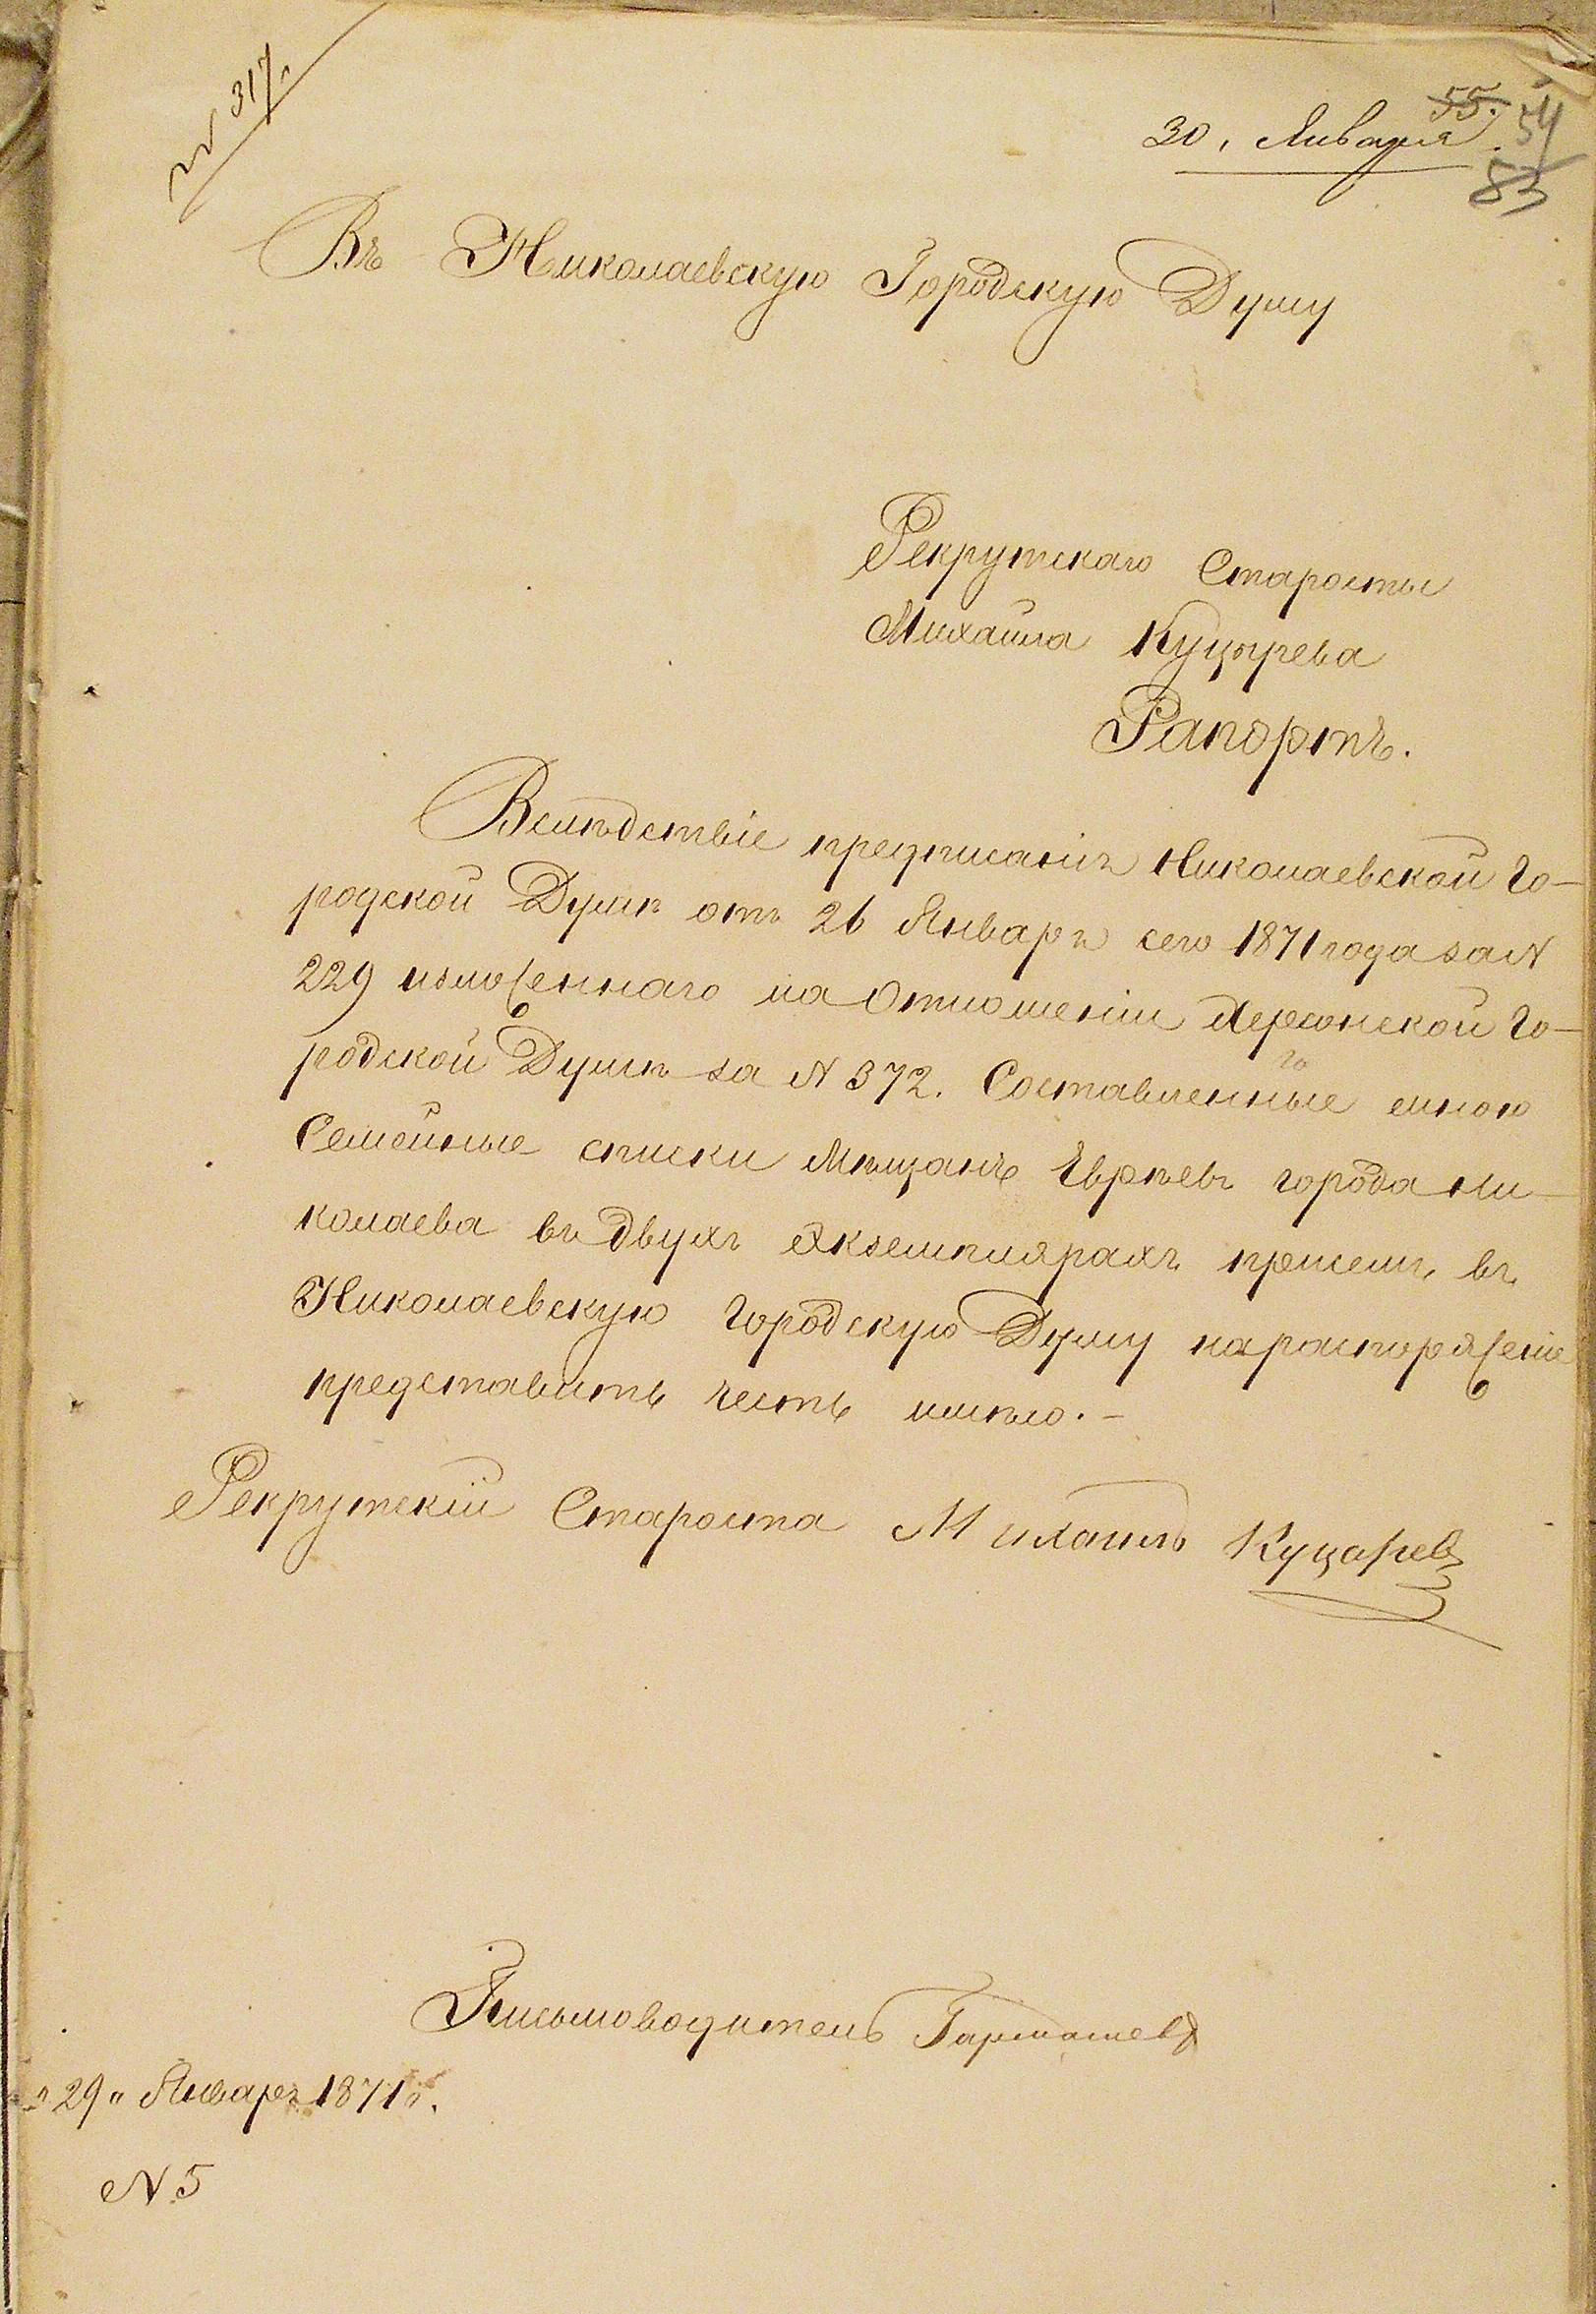 № 317.
55.
30, Января 54
83
Въ Николаевскую Городскую Думу
Рекрутскаго Старосты
Михайла Куцырева
Рапортъ.
Вслѣдствіе предписанія Николаевской Го-
родской Думы отъ 26 Января сего 1871 года за №
229 изложеннаго на Отношеніи Херсонской Го-
родской Думы за № 372. Составленные мною
Семейные списки Мѣщанъ Евреевъ города Ни-
колаева въ двухъ экземплярахъ при семъ, въ
Николаевскую Городскую Думу на распоряженіе
представить честь имѣю.-
Рекрутскій Староста Михаилъ Куцаревъ
Письмоводитель
"29" Января 1871 г.
№ 5